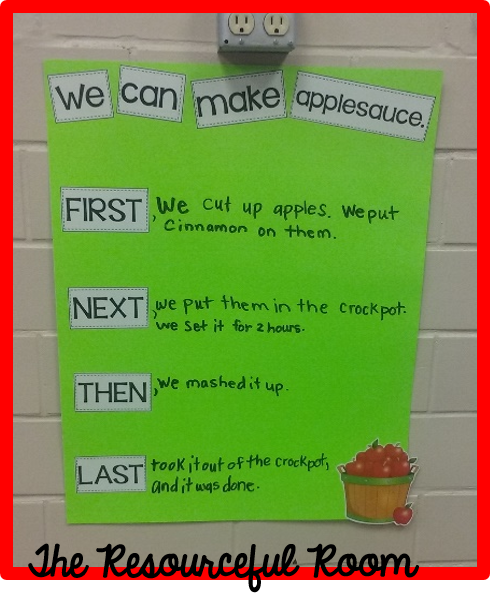 We can make applesauce.
FIRST, We cut up apples. We put
Cinnamon on them.
NEXT, we put them in the crockpot.
we set it for 2 hours.
THEN, we mashed it up.
LAST took it out of the crockpot,
and it was done.
The Resourceful Room